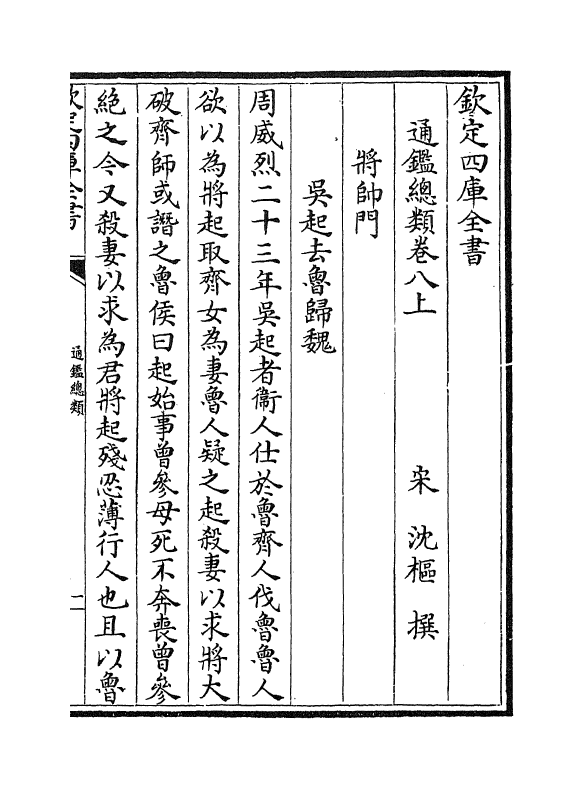 欽定四庫全書
通鑑總類卷八上
宋 沈樞 撰
將帥門
吳起去魯歸魏
周威烈二十三年吳起者衞人仕於魯齊人伐魯魯人
欲以為將起取齊女為妻魯人疑之起殺妻以求將大
破齊師或譖之魯侯曰起始事曾參母死不奔喪曾參
絶之今又殺妻以求為君將起殘忍薄行人也且以魯
欽定四庫全書
通鑑總類